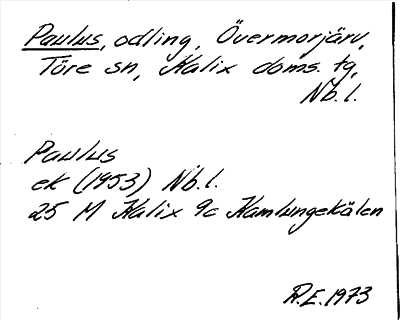 Paulus, odling, Övermorjärv,
Töre sn, Kalix doms. tg,
Nb. l.
Paulus
ek (1953) Nb. l.
25 M Kalix 9c Kamlungekälen
R.E. 1973